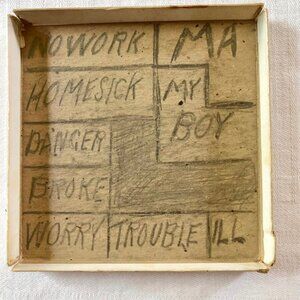 NO WORK
MA
HOMESICK
MY
BOY
DANGER
BROKE
WORRY
TROUBLE
ILL